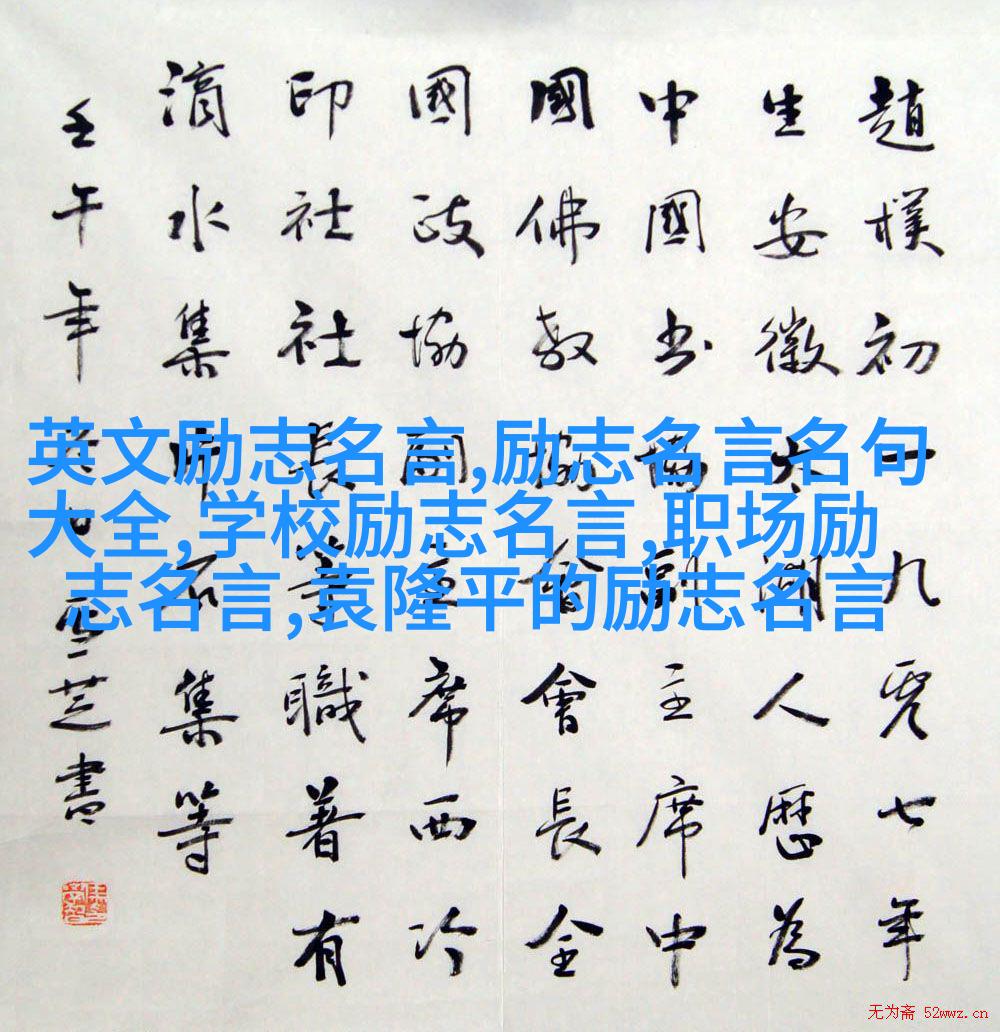 趙樸初一九零七年
生安徽太湖人歷為
中國書協副主席中
國佛教協會會長全
國政協副主席西泠
印社社長等職著有
滴水集片石集等
壬午年芝書
英文励志名言,励志名言名句
大全,学校励志名言,职场励
志名言,袁隆平的励志名言
无为斋 52wwz.cn